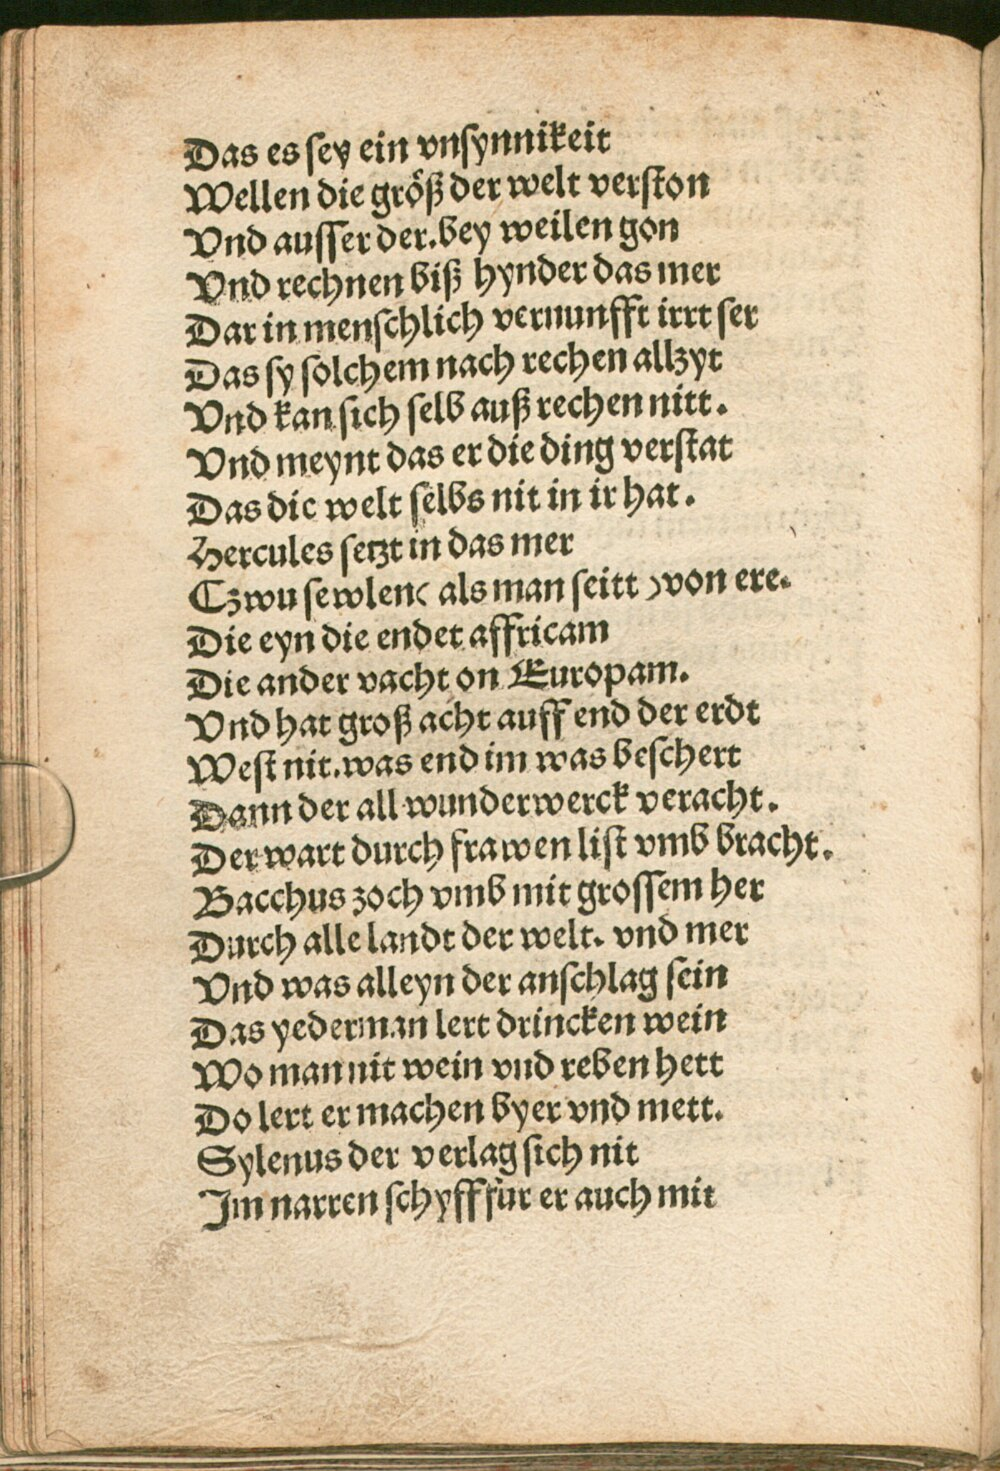 Das es sey ein vnsynnikeit
Wellen die größ der welt verston
Vnd ausser der.bey weilen gon
Vnd rechnen biß hynder das mer
Dar in menschlich vernunfft irrt ser
Das sy solchem nach rechen allzyt
Vnd kan sich selb auß rechen nitt.
Vnd meynt das er die ding verstat
Das die welt selbs nit in ir hat.
Hercules setzt in das mer
Czwu sewlen( als man seitt )von ere.
Die eyn die endet affricam
Die ander vacht on Europam.
Vnd hat groß acht auff end der erdt
West nit.was end im was beschert
Dann der all wunderwerck veracht.
Der wart durch frawen list vmb bracht.
Bacchus zoch vmb mit grossem her
Durch alle landt der welt. vnd mer
Vnd was alleyn der anschlag sein
Das yederman lert drincken wein
Wo man nit wein vnd reben hett
Do lert er machen byer vnd mett.
Sylenus der verlag sich nit
Im narren schyff für er auch mit